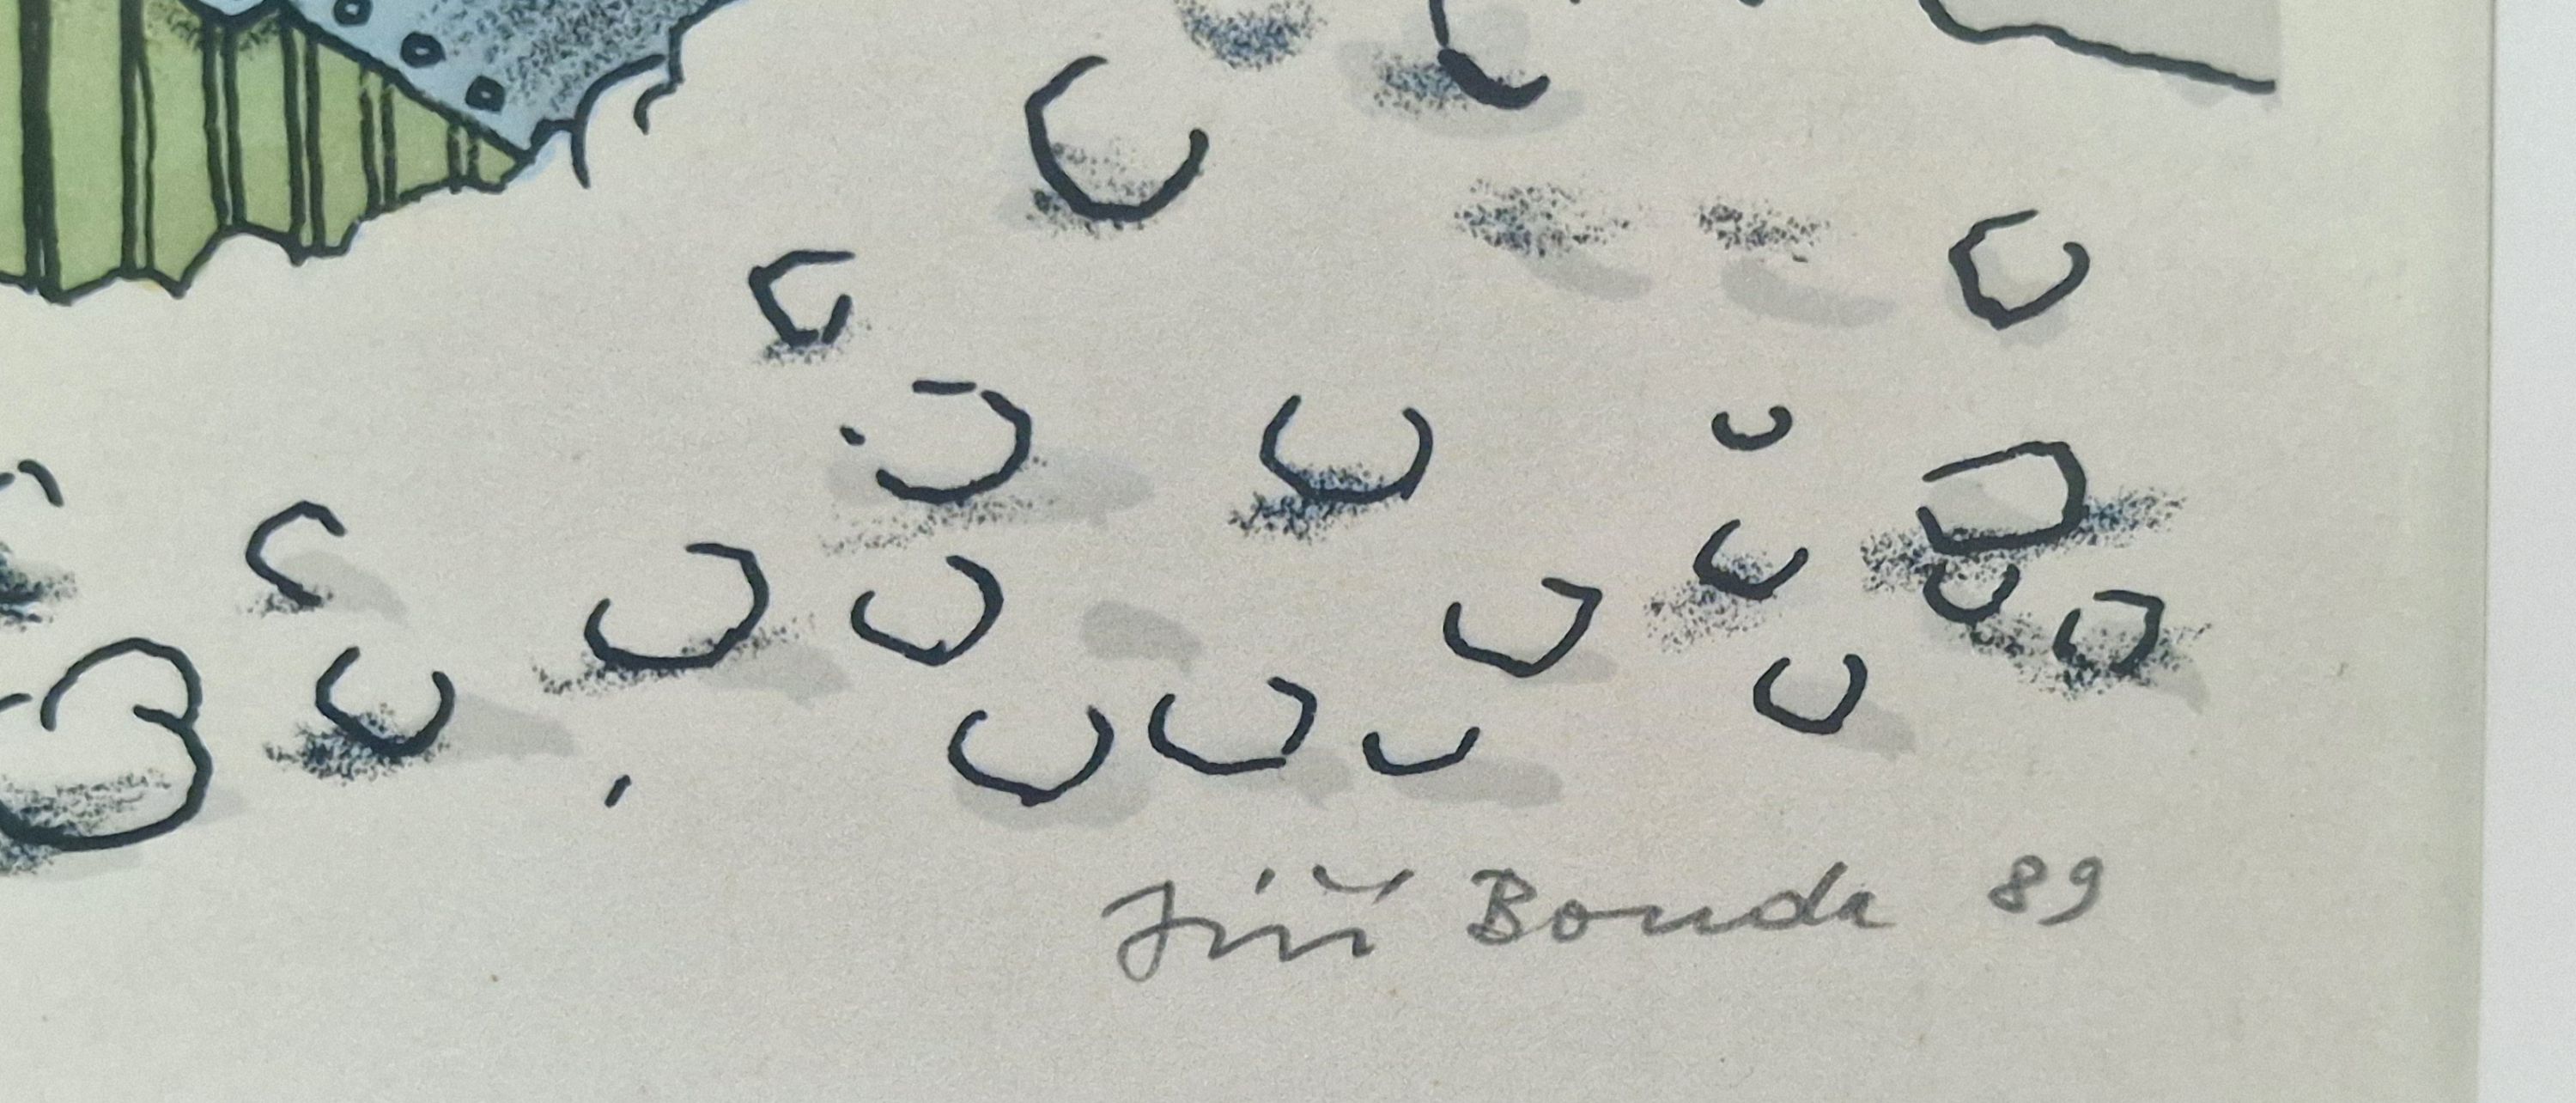 Jiří Bouda 89